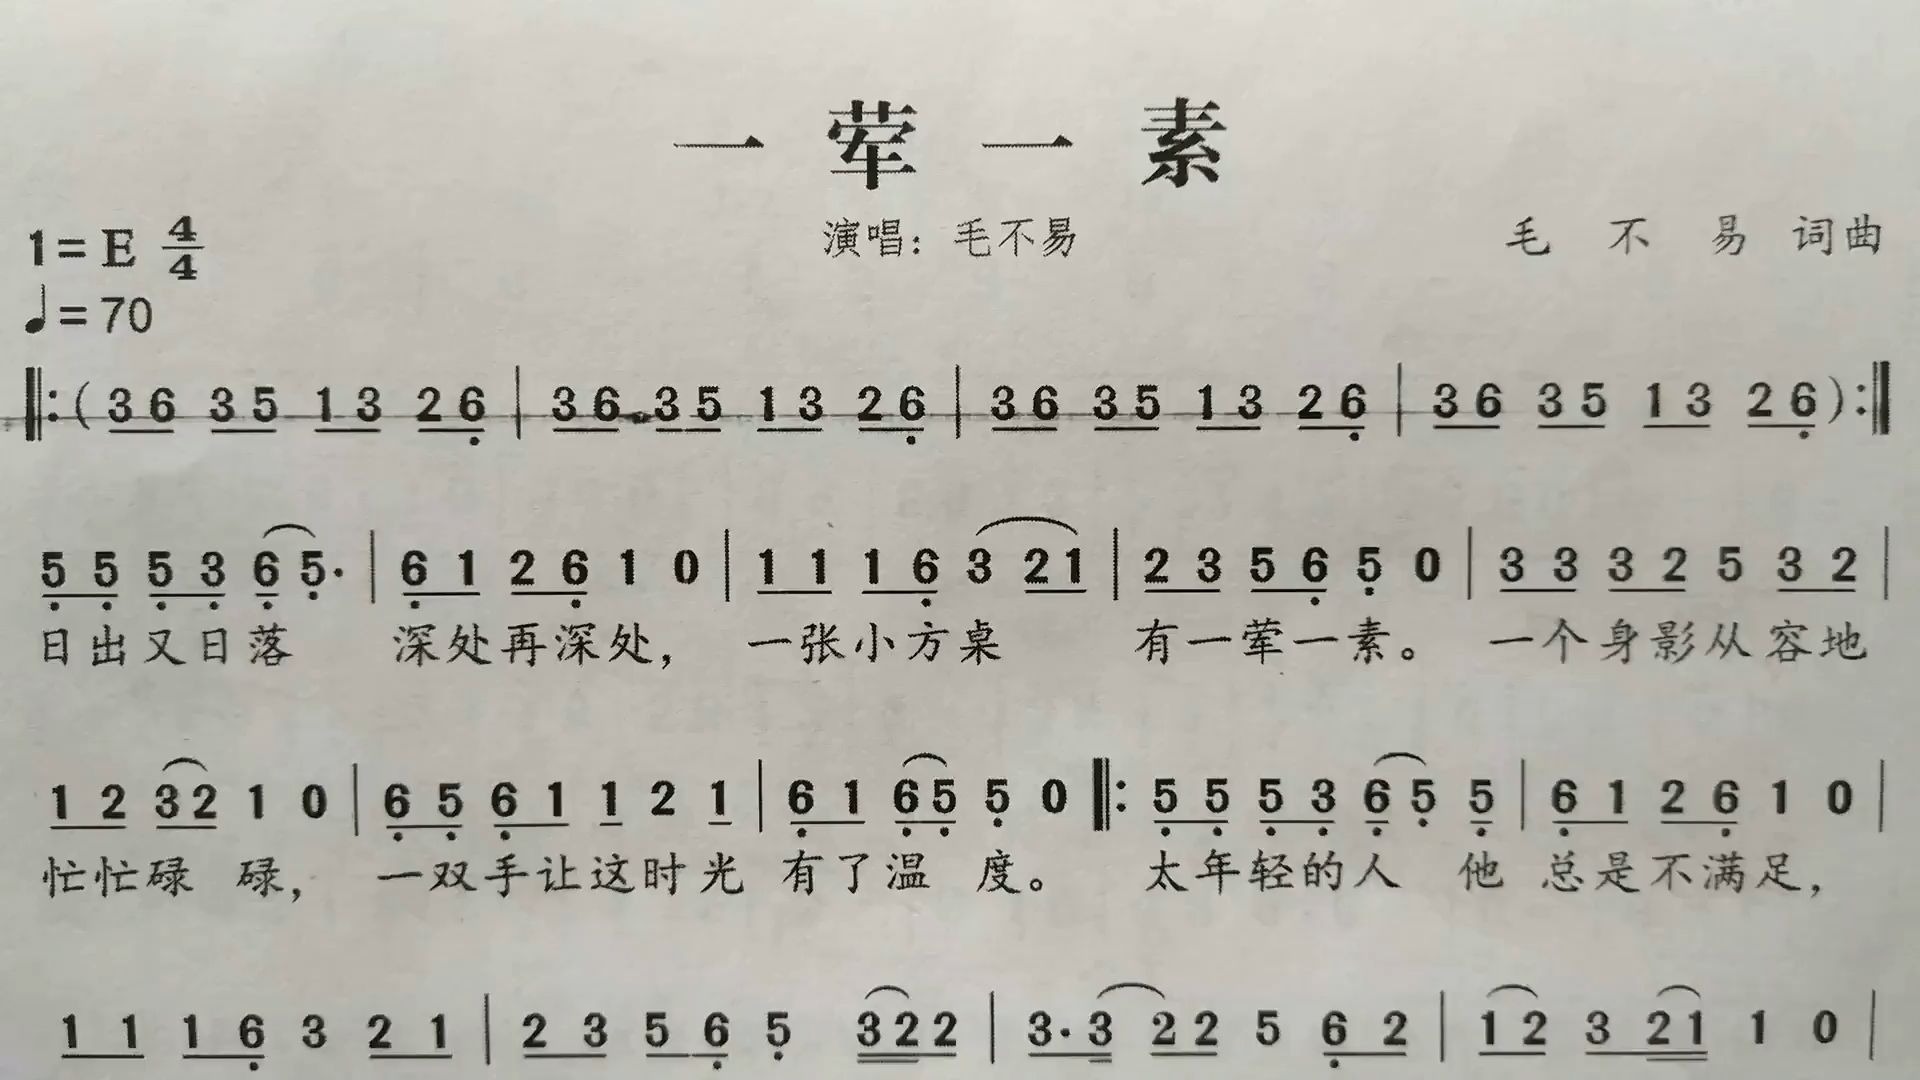 一荤一素
演唱：毛不易
毛 不 易 词曲
1=E 4/4
♩=70
‖:(36 35 13 26̣ | 36 35 13 26̣ | 36 35 13 26̣ | 36 35 13 26̣):‖
5̣ 5̣ 5̣ 3̣ 6̣ 5̣· | 6̣ 1 2 6̣ 1 0 | 1 1 1 6̣ 3 21 | 2 3 5̣ 6̣ 5̣ 0 | 3 3 3 2 5 3 2 |
日出又日落 深处再深处， 一张小方桌 有一荤一素。 一个身影从容地
1 2 32 1 0 | 6̣ 5̣ 6̣ 1 1 2 1 | 6̣ 1 6̣5̣ 5̣ 0 ‖: 5̣ 5̣ 5̣ 3̣ 6̣ 5̣ 5̣ | 6̣ 1 2 6̣ 1 0 |
忙忙碌 碌， 一双手让这时光 有了温 度。 太年轻的人 他 总是不满足，
1 1 1 6̣ 3 2 1 | 2 3 5 6̣ 5̣ 322 | 3·3 22 5 6̣ 2 | 12 3 21 1 0 |